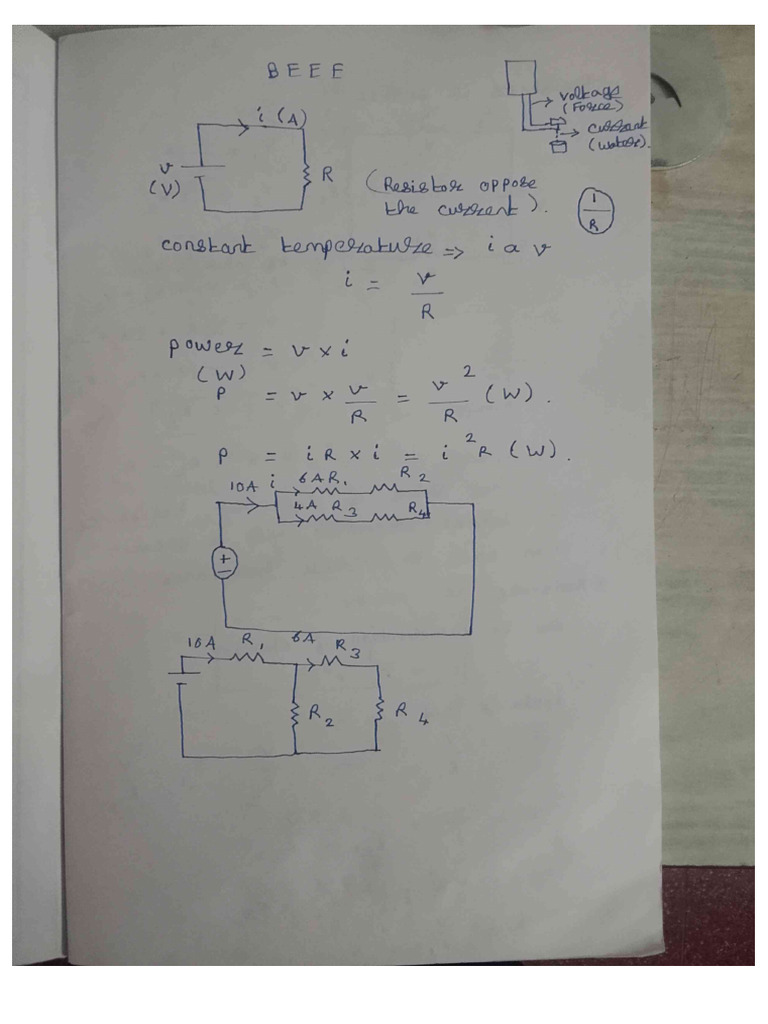 BEEE
i (A)
v
(V)
R
voltage
(Force)
current
(water).
(Resistor oppose
the current).
1
R
constant temperature => i α v
i = v
R
power = v × i
(W)
P = v × v = v² (W).
R R
P = iR × i = i²R (W).
10A i 6A R₁ R₂
4A R₃ R₄
+
−
10A R₁ 6A R₃
R₂ R₄